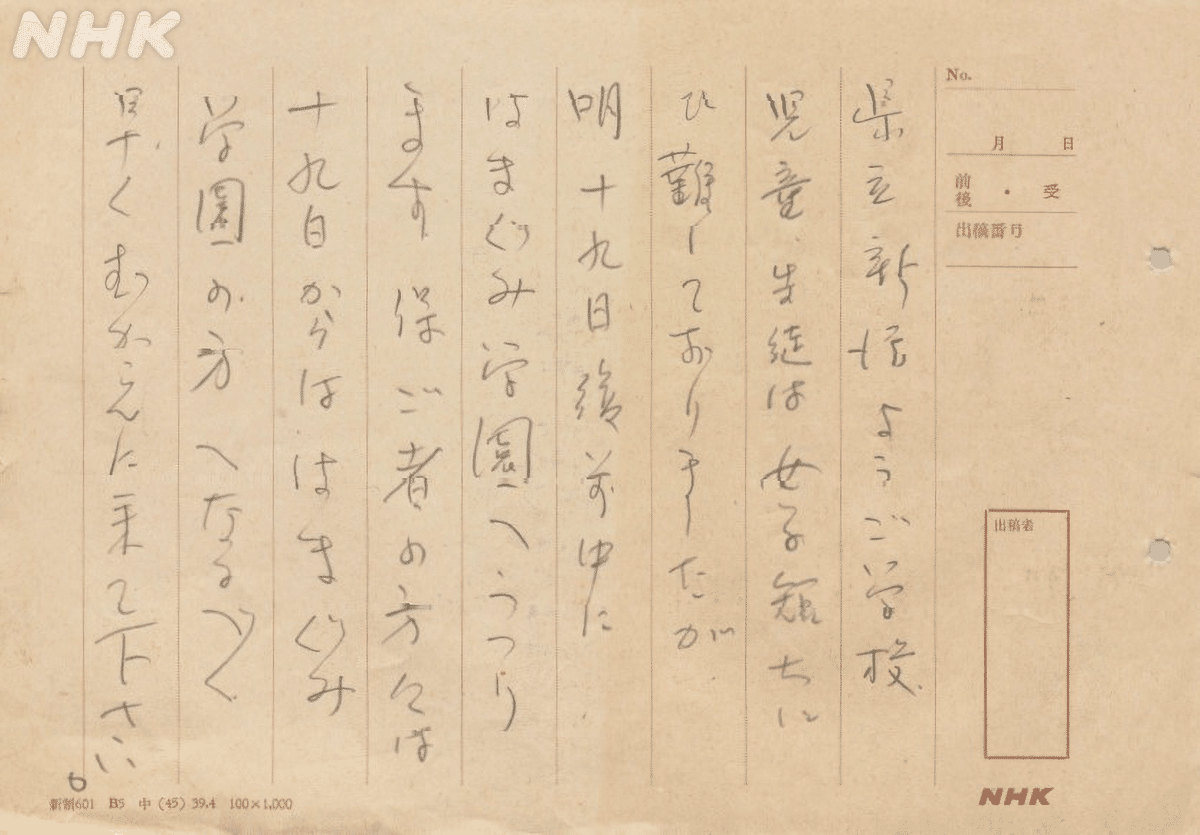 NHK
No.
月 日
前後・受
出稿番号
出稿者
NHK
県立新潟ようご学校
児童、生徒は女子短大に
ひ難しておりましたが
明十九日前中に
はまぐみ学園へうつり
ます 保ご者の方々は
十九日からははまぐみ
学園の方へなるべく
早くむかえに来て下さい。
601 B5 中 (45) 39.4 100×1,000